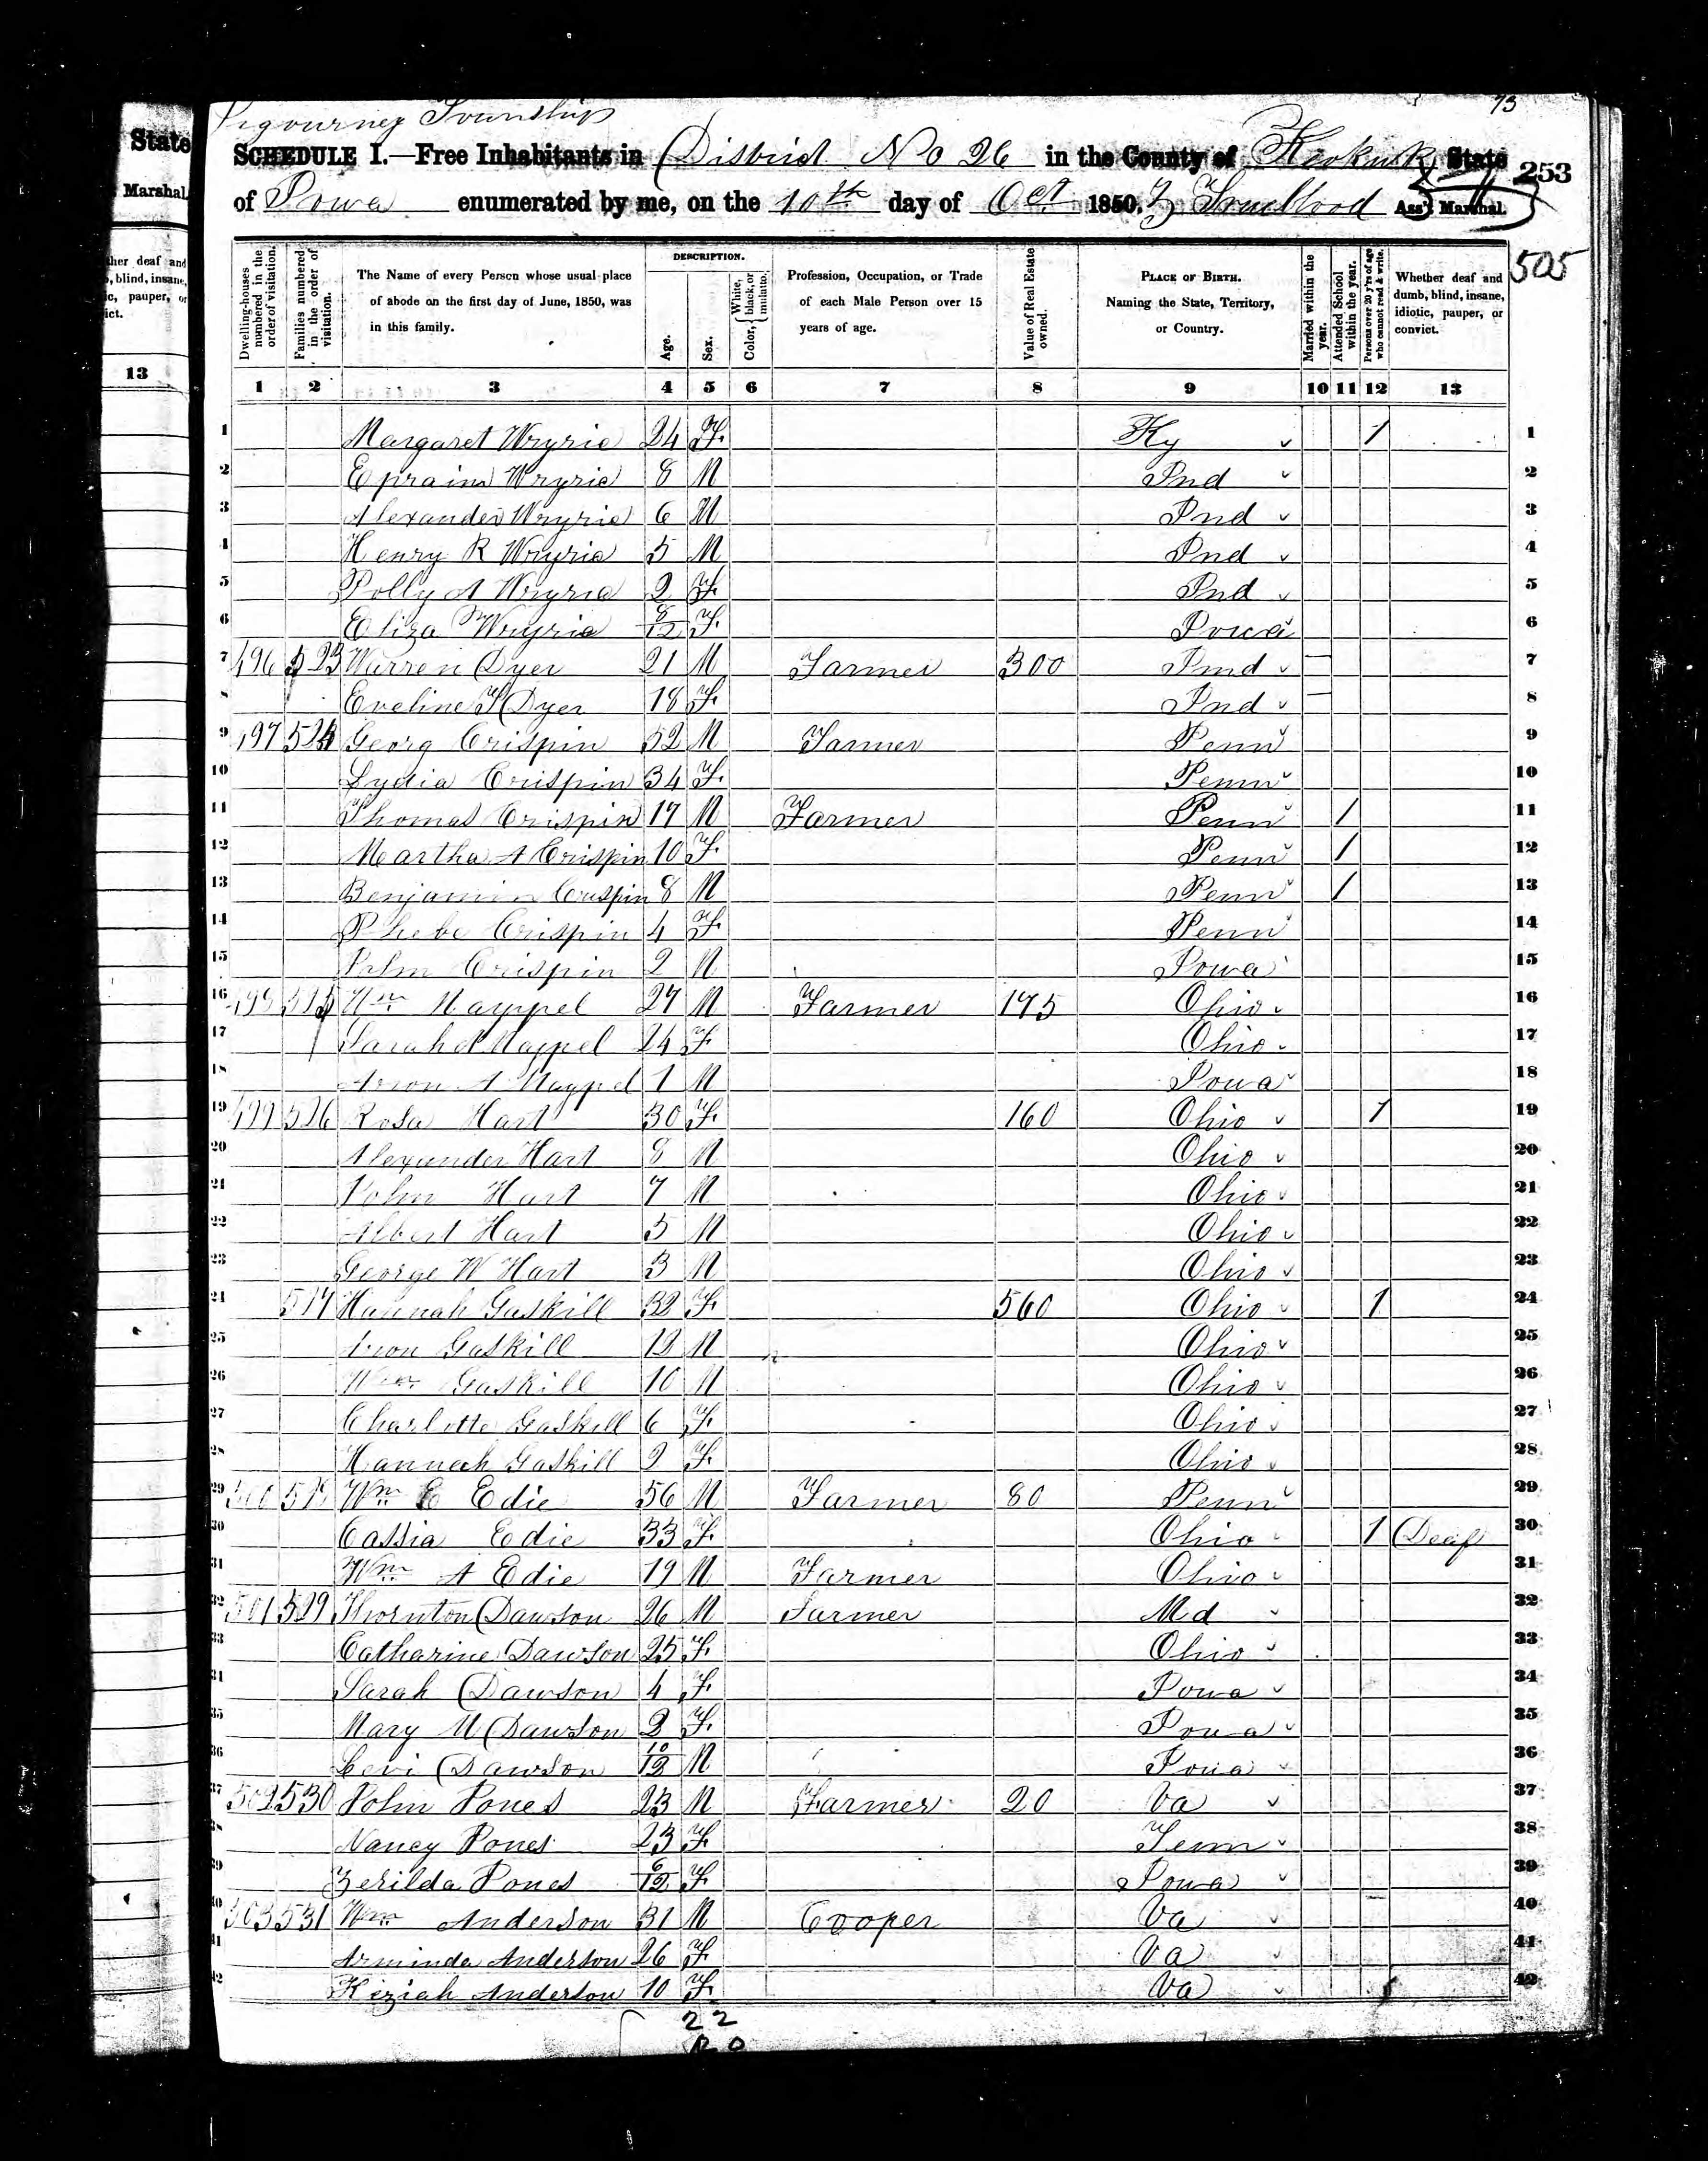 State
Marshal.
her deaf and
, blind, insane,
ic, pauper, or
ict.
13
73
Sigourney Township
SCHEDULE I.—Free Inhabitants in District No 26 in the County of Keokuk State 253
of Iowa enumerated by me, on the 10th day of Oct 1850. Trueblood Ass't Marshal.
505
Dwelling-houses numbered in the order of visitation.
Families numbered in the order of visitation.
The Name of every Person whose usual place of abode on the first day of June, 1850, was in this family.
DESCRIPTION.
Age.
Sex.
Color, White, black, or mulatto.
Profession, Occupation, or Trade of each Male Person over 15 years of age.
Value of Real Estate owned.
PLACE OF BIRTH. Naming the State, Territory, or Country.
Married within the year.
Attended School within the year.
Persons over 20 y'rs of age who cannot read & write.
Whether deaf and dumb, blind, insane, idiotic, pauper, or convict.
1 2 3 4 5 6 7 8 9 10 11 12 13
1 Margaret Wryrie 24 F Ky 1 1
2 Epraim Wryrie 8 M Ind 2
3 Alexander Wryrie 6 M Ind 3
4 Henry R Wryrie 5 M Ind 4
5 Polly A Wryrie 2 F Ind 5
6 Eliza Wryrie 8/12 F Iowa 6
7 496 523 Warren Dyer 21 M Farmer 300 Ind 7
8 Eveline Dyer 18 F Ind 8
9 497 524 Georg Crispin 52 M Farmer Penn 9
10 Lydia Crispin 34 F Penn 10
11 Thomas Crispin 17 M Farmer Penn 1 11
12 Martha A Crispin 10 F Penn 1 12
13 Benjamin Crispin 8 M Penn 1 13
14 Phebe Crispin 4 F Penn 14
15 John Crispin 2 M Iowa 15
16 498 525 Wm Mayppel 27 M Farmer 175 Ohio 16
17 Sarah Mappel 24 F Ohio 17
18 Aron A Mayppel 1 M Iowa 18
19 499 526 Rosa Hart 30 F 160 Ohio 1 19
20 Alexander Hart 8 M Ohio 20
21 John Hart 7 M Ohio 21
22 Albert Hart 5 M Ohio 22
23 George W Hart 3 M Ohio 23
24 527 Hannah Gaskill 32 F 560 Ohio 1 24
25 Aron Gaskill 12 M Ohio 25
26 Wm Gaskill 10 M Ohio 26
27 Charlotte Gaskill 6 F Ohio 27
28 Hannah Gaskill 2 F Ohio 28
29 500 528 Wm E Edie 56 M Farmer 80 Penn 29
30 Cassia Edie 33 F Ohio 1 Deaf 30
31 Wm A Edie 19 M Farmer Ohio 31
32 501 529 Thornton Dawson 26 M Farmer Md 32
33 Catharine Dawson 25 F Ohio 33
34 Sarah Dawson 4 F Iowa 34
35 Mary M Dawson 2 F Iowa 35
36 Levi Dawson 10/12 M Iowa 36
37 502 530 John Jones 23 M Farmer 20 Va 37
38 Nancy Jones 23 F Tenn 38
39 Zerilda Jones 6/12 F Iowa 39
40 503 531 Wm Anderson 31 M Cooper Va 40
41 Arminda Anderson 26 F Va 41
42 Kiziah Anderson 10 F Va 42
22
20